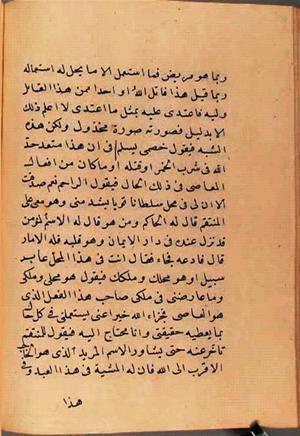 وبما هو مريض فما استعمل الا ما يحل له استعماله
وبما قيل هذا قاتل الله او احدا ممن هذا القاتل
وليه فاعتدى عليه بمثل ما اعتدى لا اعلم ذلك
الا بدليل فصورته صورة مخذول ولكن هذه
الشبه فيقول خصمى يسلم فى ان هذا متعد حد
الله فى شرب الخمر وقتله او ما كان من افعال
المعاصى فى ذلك الحال فيقول الراحم نعم صدقت
الا ان لى فى محل سلطانا قريا يشد منى وهو معى على
المنتقم قال له الحاكم ومن هو قال له الاسم المؤمن
قد نزل عنده فى دار الايمان وهو قلبه فله الامار
قال فادعه فجاء فقال انت فى هذا المحل عابر
سبيل او هو محلك وملكك فيقول هو محلى وملكى
وما عارضنى فى ملكى صاحب هذا الفعل الذى
هو العاصى فجزاه الله خيرا عنى يستعملنى فى كل
بما يعطيه حقيقتى وانا محتاج اليه فيقول للمنتقم
تاخر عنه حتى يشاور الاسم المريد الذى هو
الاقرب الى الله فان له المشية فى هذا العبد و
هذا